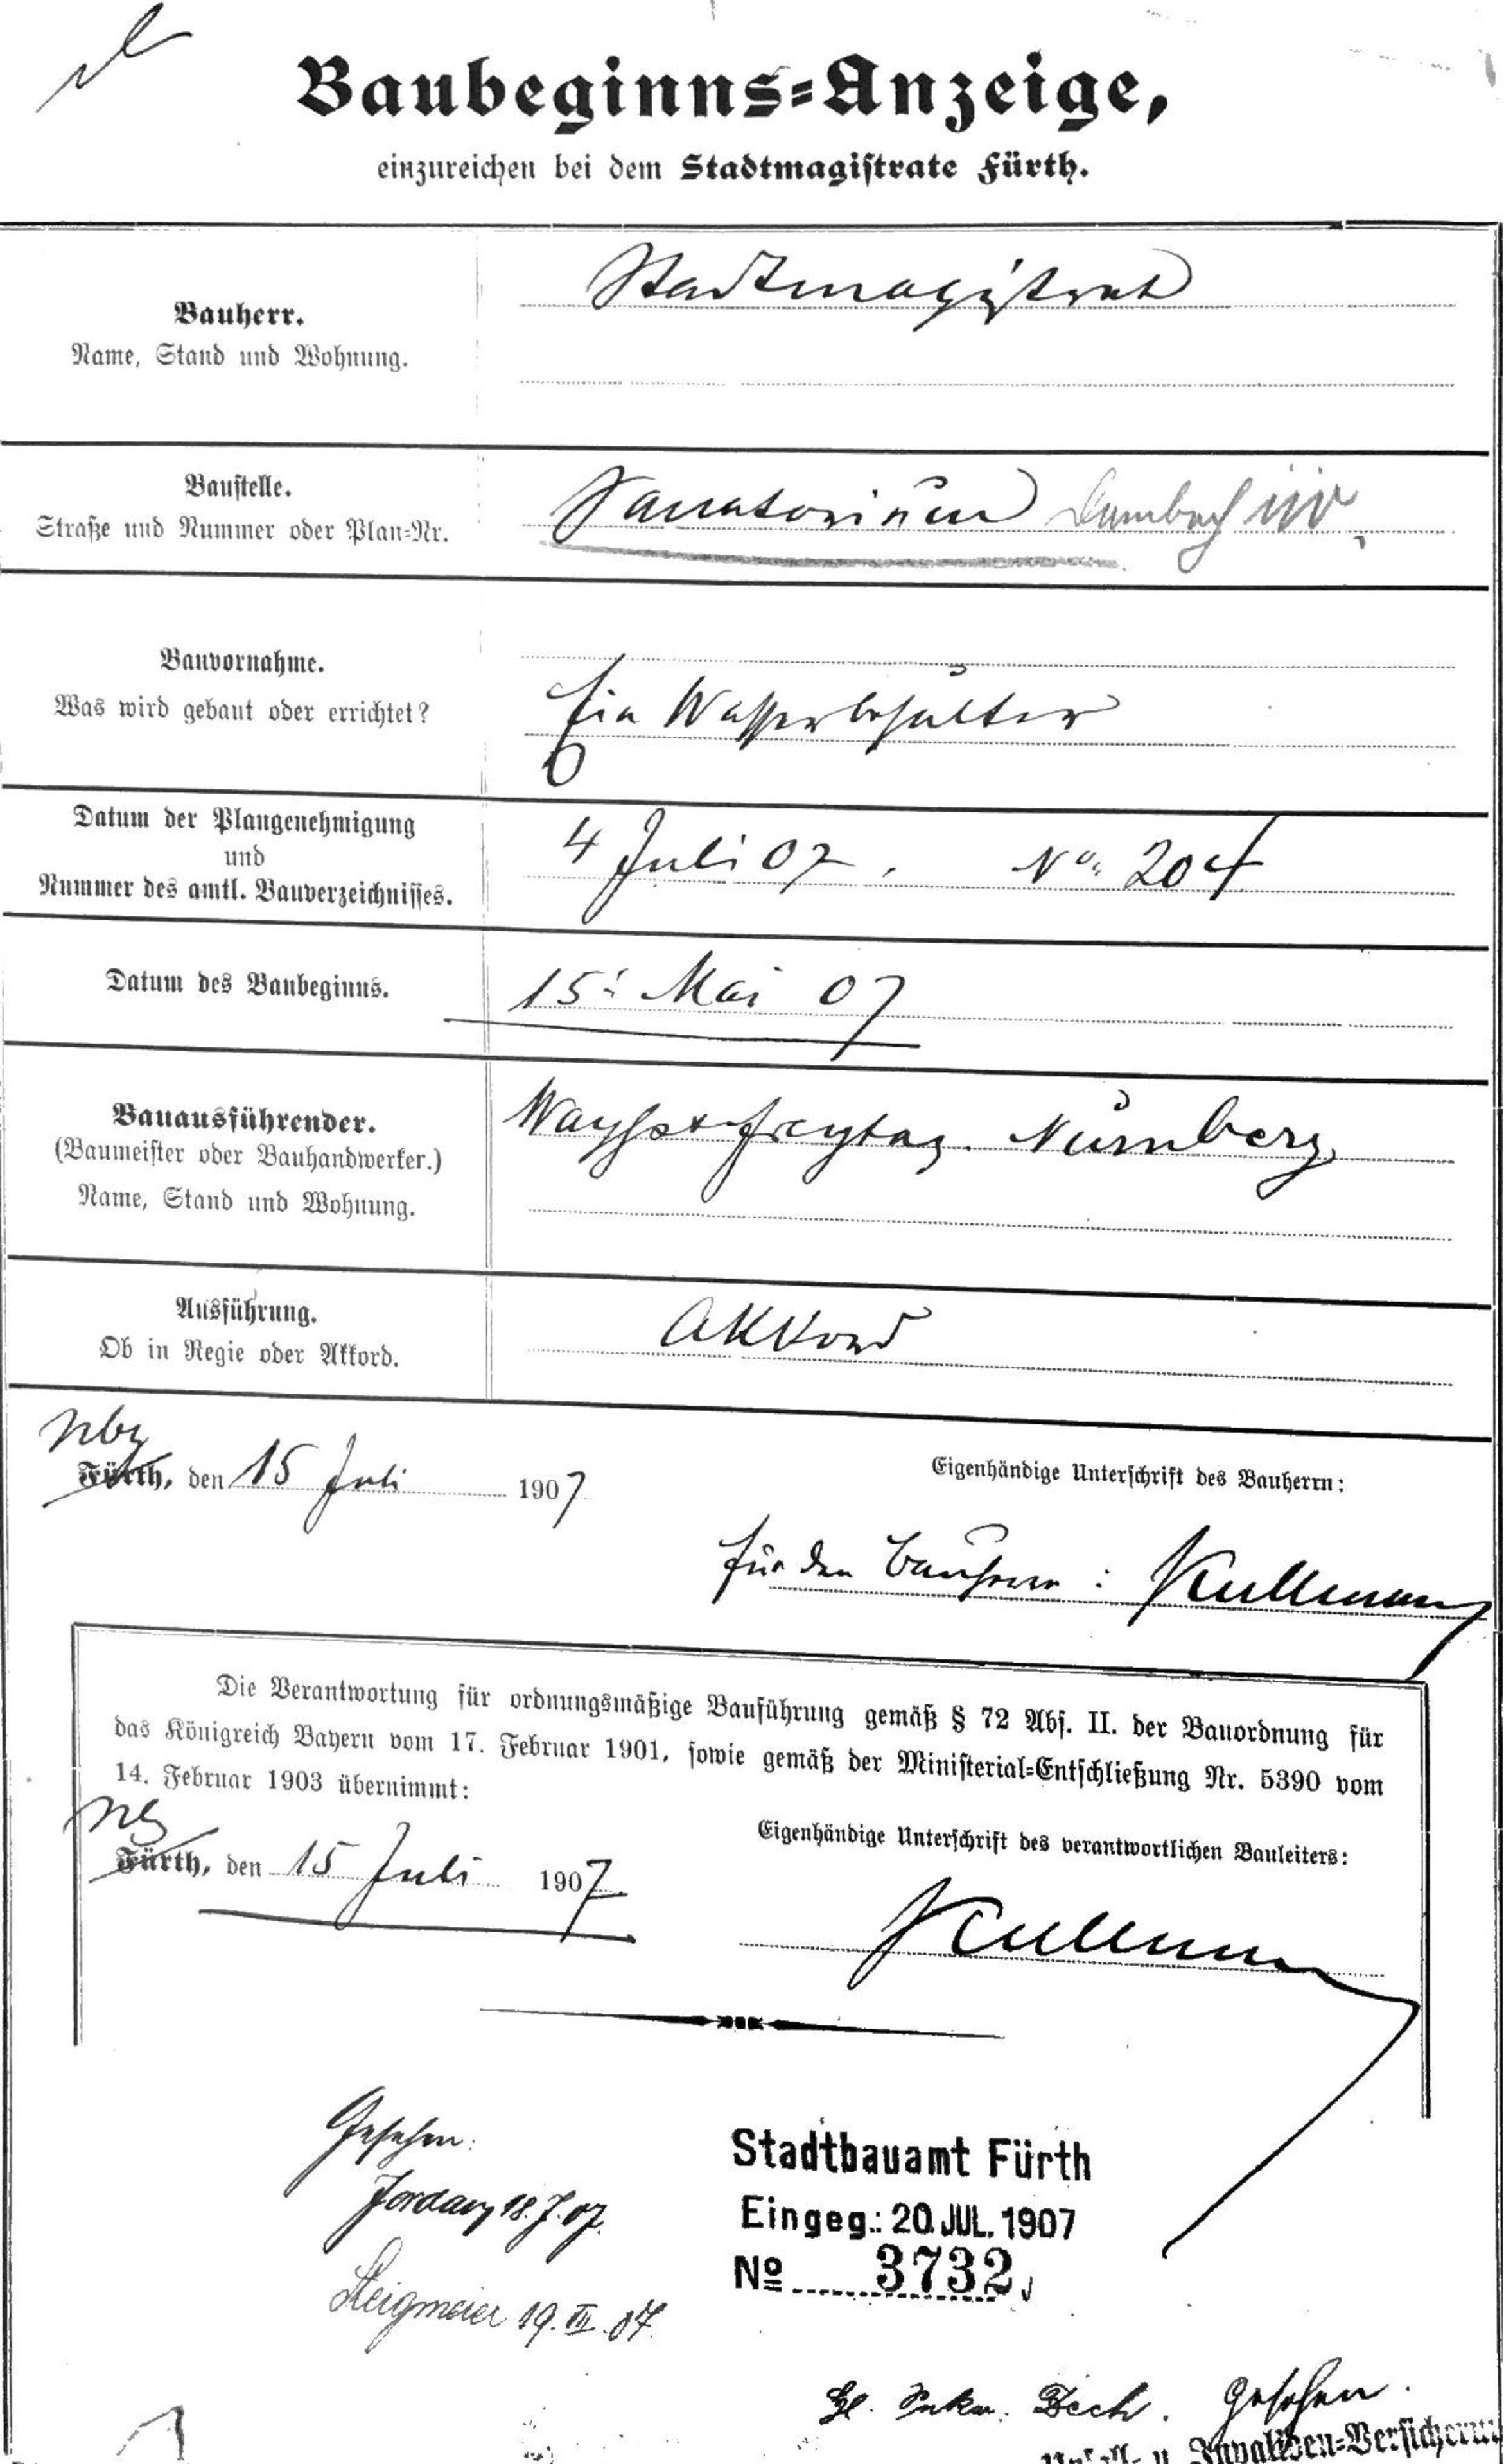 Baubeginns-Anzeige,
einzureichen bei dem Stadtmagistrate Fürth.
Bauherr.
Name, Stand und Wohnung.
Stadtmagistrat
Baustelle.
Straße und Nummer oder Plan-Nr.
Sanatorium Dambach
Bauvornahme.
Was wird gebaut oder errichtet?
Ein Wasserbehälter
Datum der Plangenehmigung
und
Nummer des amtl. Bauverzeichnisses.
4 Juli 07. No. 204
Datum des Baubeginns.
15. Mai 07
Bauausführender.
(Baumeister oder Bauhandwerker.)
Name, Stand und Wohnung.
Wayss + Freytag. Nürnberg.
Ausführung.
Ob in Regie oder Akkord.
Akkord
Nbg
Fürth, den 15 Juli 1907
Eigenhändige Unterschrift des Bauherrn:
für den Bauherrn: Kullmann
Die Verantwortung für ordnungsmäßige Bauführung gemäß § 72 Abs. II. der Bauordnung für
das Königreich Bayern vom 17. Februar 1901, sowie gemäß der Ministerial-Entschließung Nr. 5390 vom
14. Februar 1903 übernimmt:
Nbg
Fürth, den 15 Juli 1907
Eigenhändige Unterschrift des verantwortlichen Bauleiters:
Kullmann
Gesehen:
Jordan 18.7.07.
Steigmeier 19. VII. 07.
Stadtbauamt Fürth
Eingeg.: 20. JUL. 1907
No 3732
Gesehen.
Unfall- u. Invaliden-Versicherun